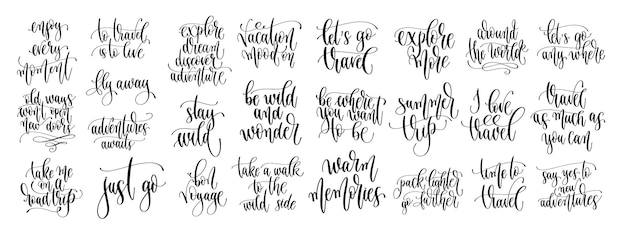 enjoy
every
moment
old ways
won't open
new doors
take me
on a
road trip
to travel
is to live
fly away
adventures
awaits
just go
explore
dream
discover
adventure
stay
wild
bon
voyage
vacation
mood on
be wild
and
wonder
take a walk
to the
wild side
let's go
travel
be where
you want
to be
warm
memories
explore
more
summer
trip
pack lighter
go further
around
the world
I love
travel
time to
travel
let's go
any where
travel
as much as
you can
say yes to
new
adventures